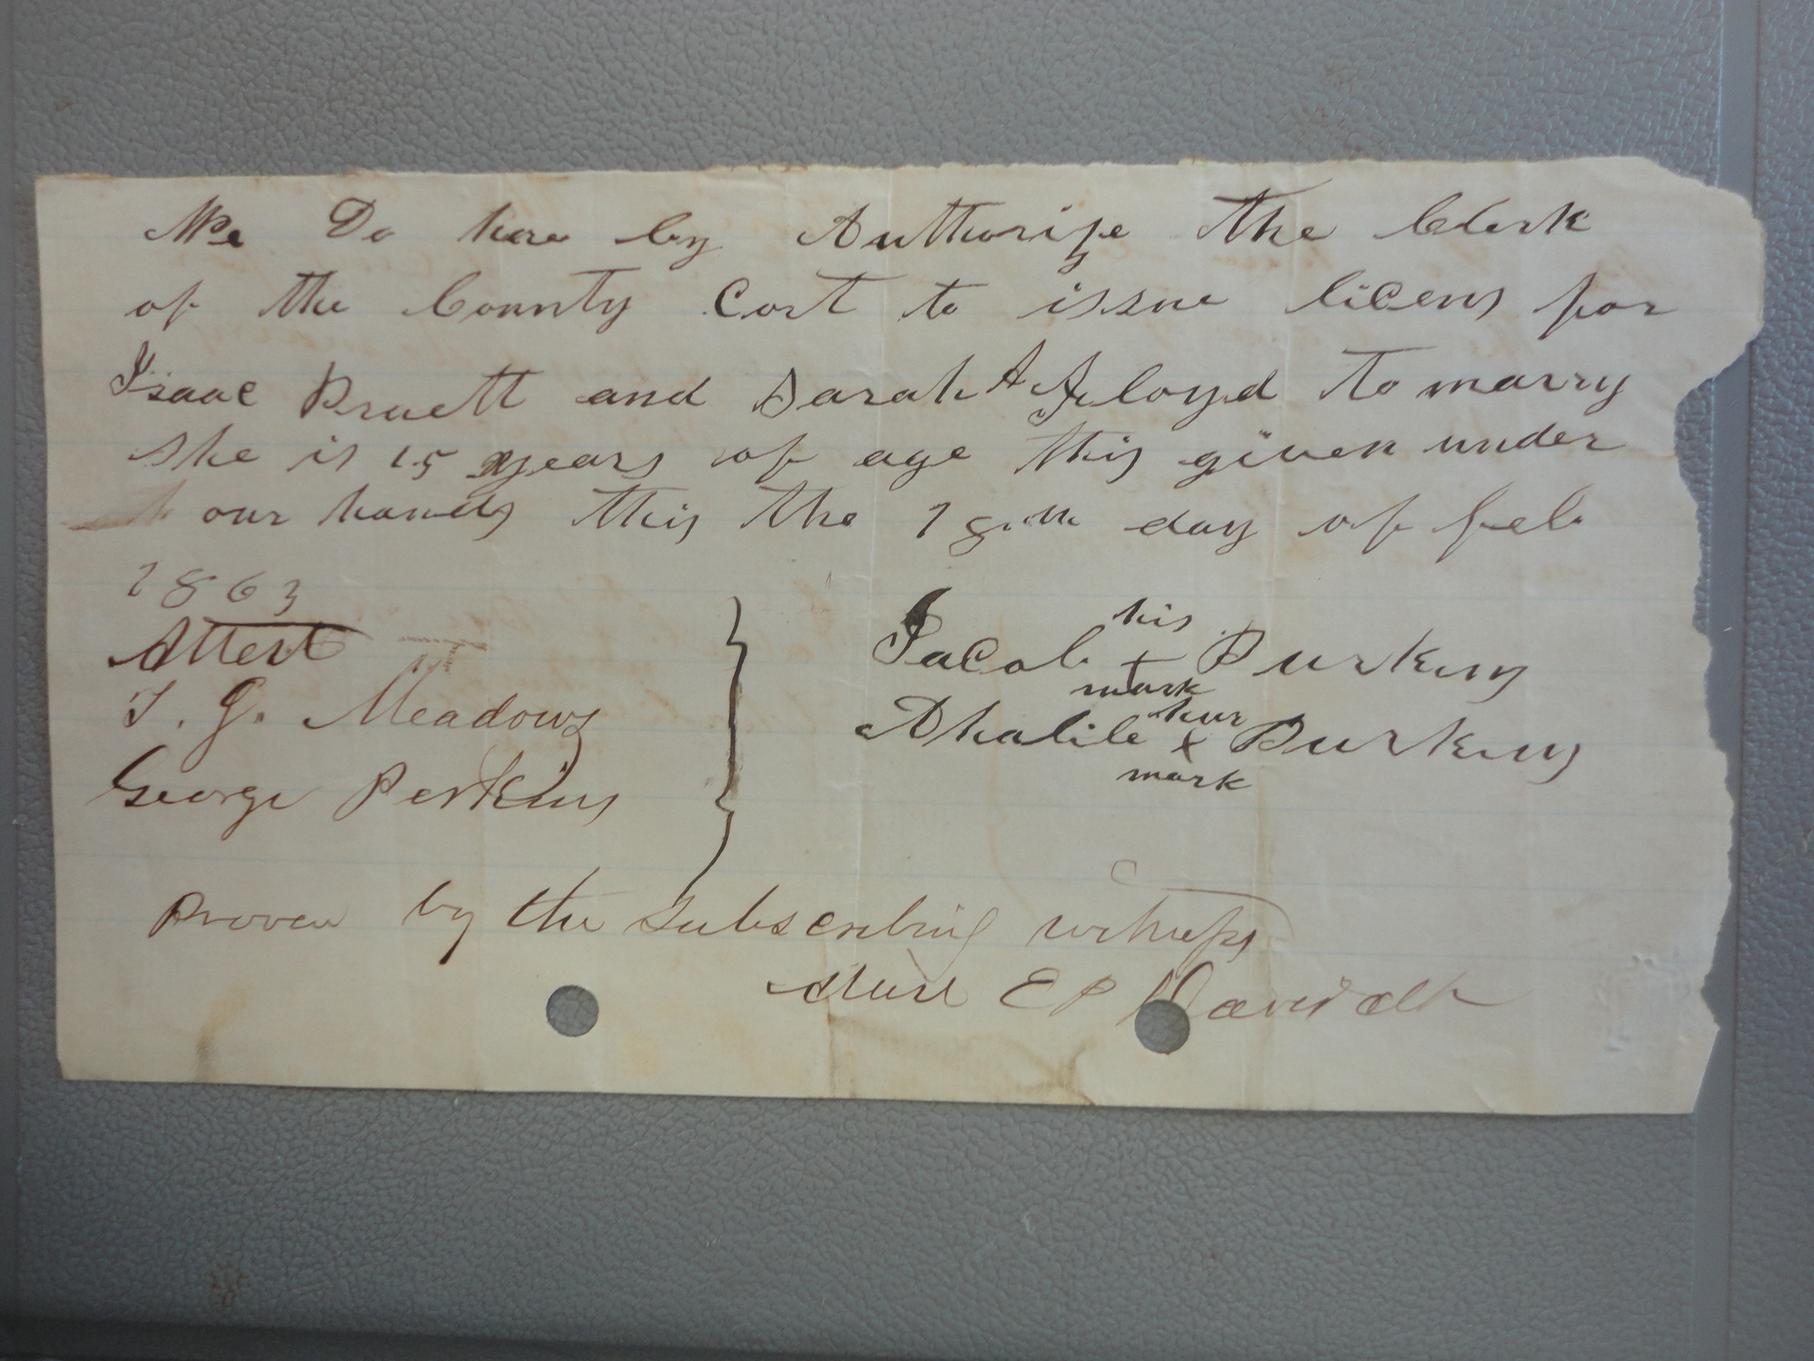 We Do here by Authorize the Clerk
of the County Cort to issue licens for
Isaac Pruett and Sarah A Floyd to marry
she is 15 years of age this given under
our hands this the 18th day of feb
1863
Attest
T. G. Meadows
George Perkins
his
Jacob + Purkins
mark
hur
Ahalile x Purkins
mark
Proven by the subscribing witness
Attest E P